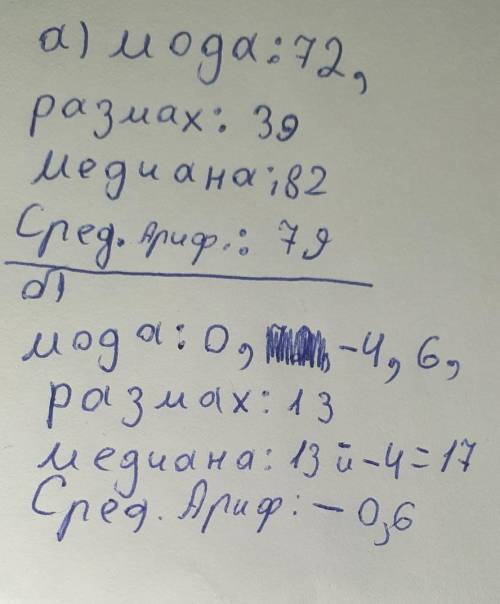 а) мода: 72,
размах: 39
медиана: 82
Сред. Ариф.: 79
б)
мода: 0, -4, 6,
размах: 13
медиана: 13 и -4 = 17
Сред. Ариф: - 0,6